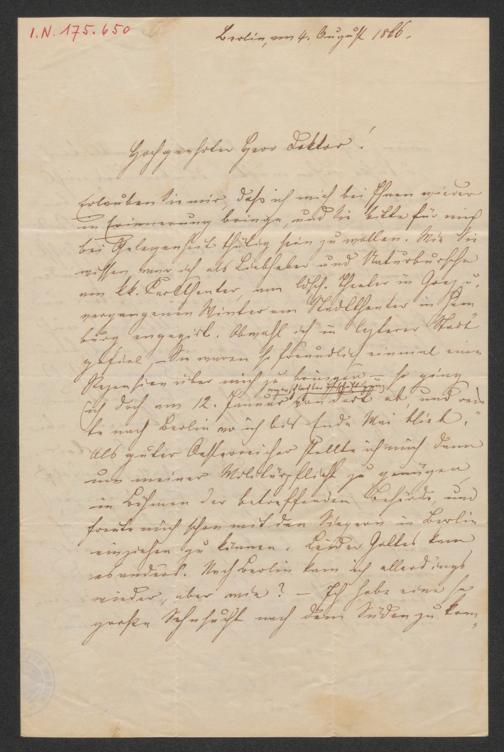 I.N. 175.650
Berlin, am 4. August 1866.
Hochgeehrter Herr Doktor!
Erlauben Sie mir, daß ich mich bei Ihnen wieder
in Erinnerung bringe, und Sie bitte für mich
bei Gelegenheit thätig sein zu wollen. Wie Sie
wissen war ich als Liebhaber und Naturbursche
am kk. Carltheater, am Theater in Graz, u.
vergangenen Winter am Stadttheater in Ham
burg engagirt. Obwohl ich in letzterer Stadt
gefiel – Sie waren so freundlich einmal eine
Rezension über mich zu bringen – so ging
ich doch am 12. Januar von dort ab und
te nach Berlin wo ich bis Ende Mai blieb.
Als guter Oesterreicher stellte ich mich dann
um meiner Militärpflicht zu genügen
in Böhmen der betreffenden Behörde, und
freute mich schon mit den Siegern in Berlin
einziehen zu können. Leider Gottes kam
es anders. Nach Berlin kam ich allerdings
wieder, aber wie? – Ich habe eine so
große Sehnsucht nach dem Süden zu kom